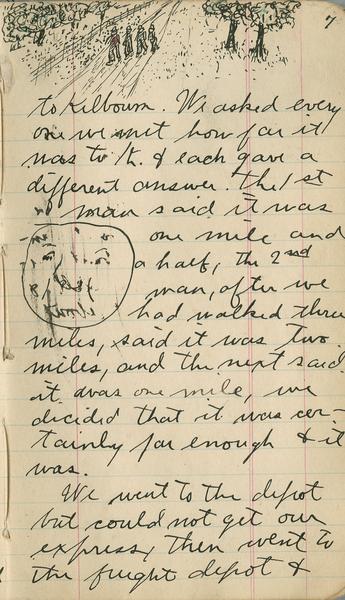 7
to Kilbourn. We asked every
one we met how far it
was to K. & each gave a
different answer. The 1st
man said it was
one mile and
a half, the 2nd
man, after we
had walked three
miles, said it was two
miles, and the next said
it was one mile, we
decided that it was cer-
tainly far enough & it
was.
We went to the depot
but could not get our
express, then went to
the freight depot &